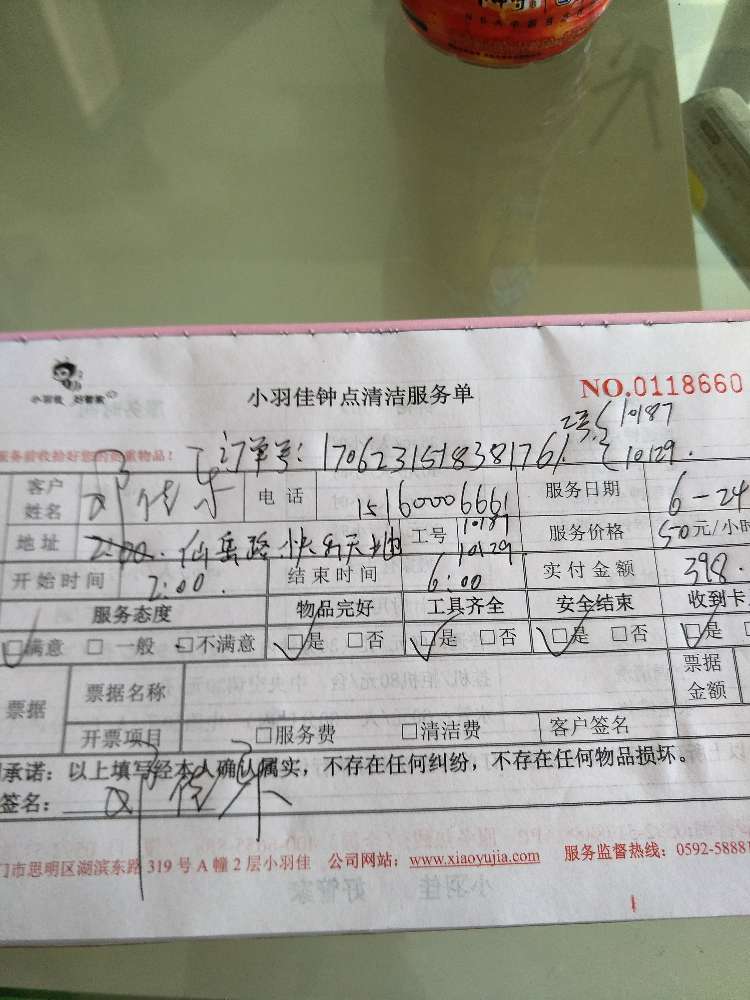 小羽佳 好管家
小羽佳钟点清洁服务单
NO.0118660
订单号: 1706231518381761. 工号{10187
10129.
客户姓名
电话 15160006661 服务日期 6-24
地址 2:00. 仙岳路快乐天地 工号 10187 10129. 服务价格 50元/小时
开始时间 2:00. 结束时间 6:00 实付金额 398.
服务态度 物品完好 工具齐全 安全结束 收到卡
☑满意 □一般 □不满意 ☑是 □否 ☑是 □否 ☑是 □否 ☑是
票据 票据名称 票据金额
开票项目 □服务费 □清洁费 客户签名
承诺：以上填写经本人确认属实，不存在任何纠纷，不存在任何物品损坏。
签名：
门市思明区湖滨东路 319 号 A 幢 2 层小羽佳 公司网站：www.xiaoyujia.com 服务监督热线：0592-58881